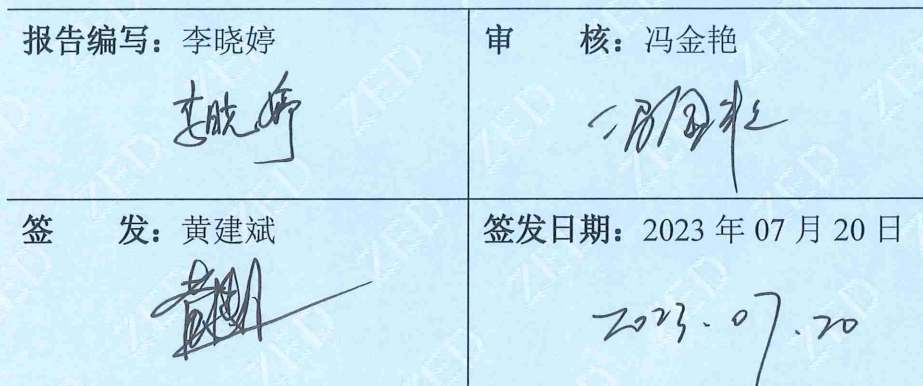 报告编写：李晓婷
李晓婷
审 核：冯金艳
冯金艳
签 发：黄建斌
黄建斌
签发日期：2023 年 07 月 20 日
2023.07.20
ZED